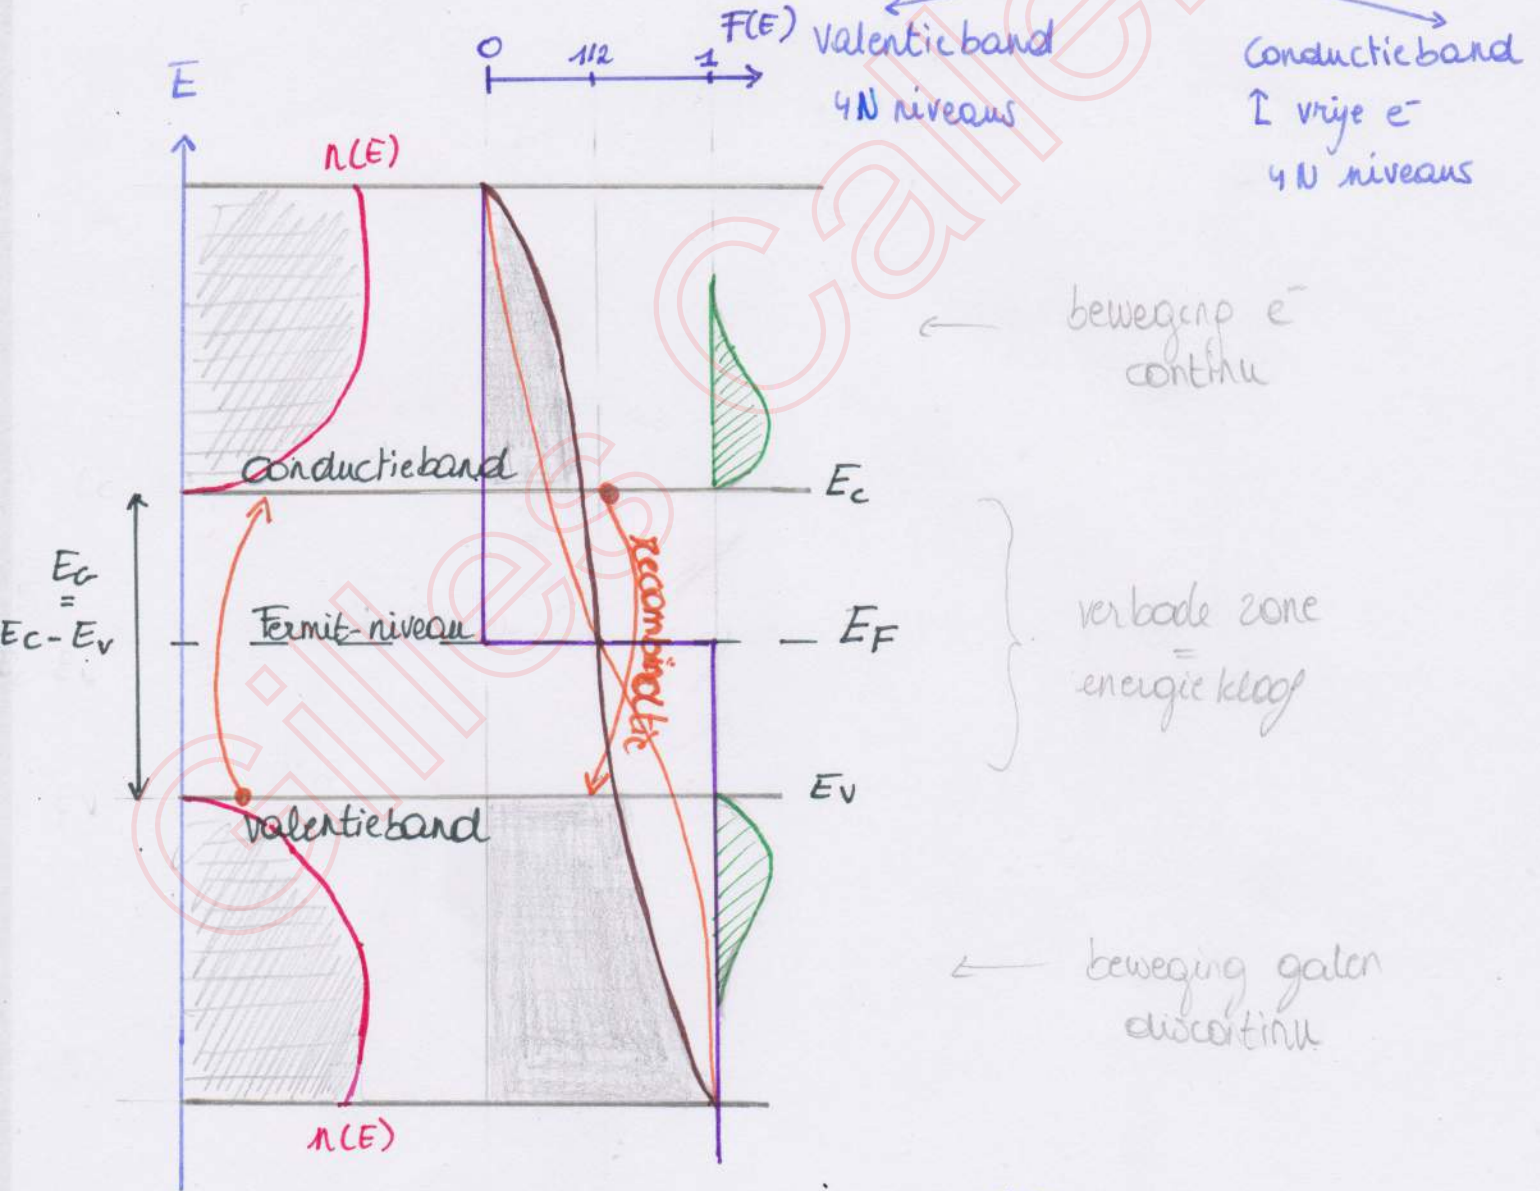 F(E)
valentieband
conductieband
0
1/2
1
E
4N niveaus
↑ vrije e⁻
4N niveaus
n(E)
beweging e⁻
continu
conductieband
Ec
EG
=
Ec - Ev
Fermit-niveau
EF
recombinatie
verbode zone
=
energiekloof
Ev
valentieband
beweging gaten
discontinu
n(E)
Gilles Calle